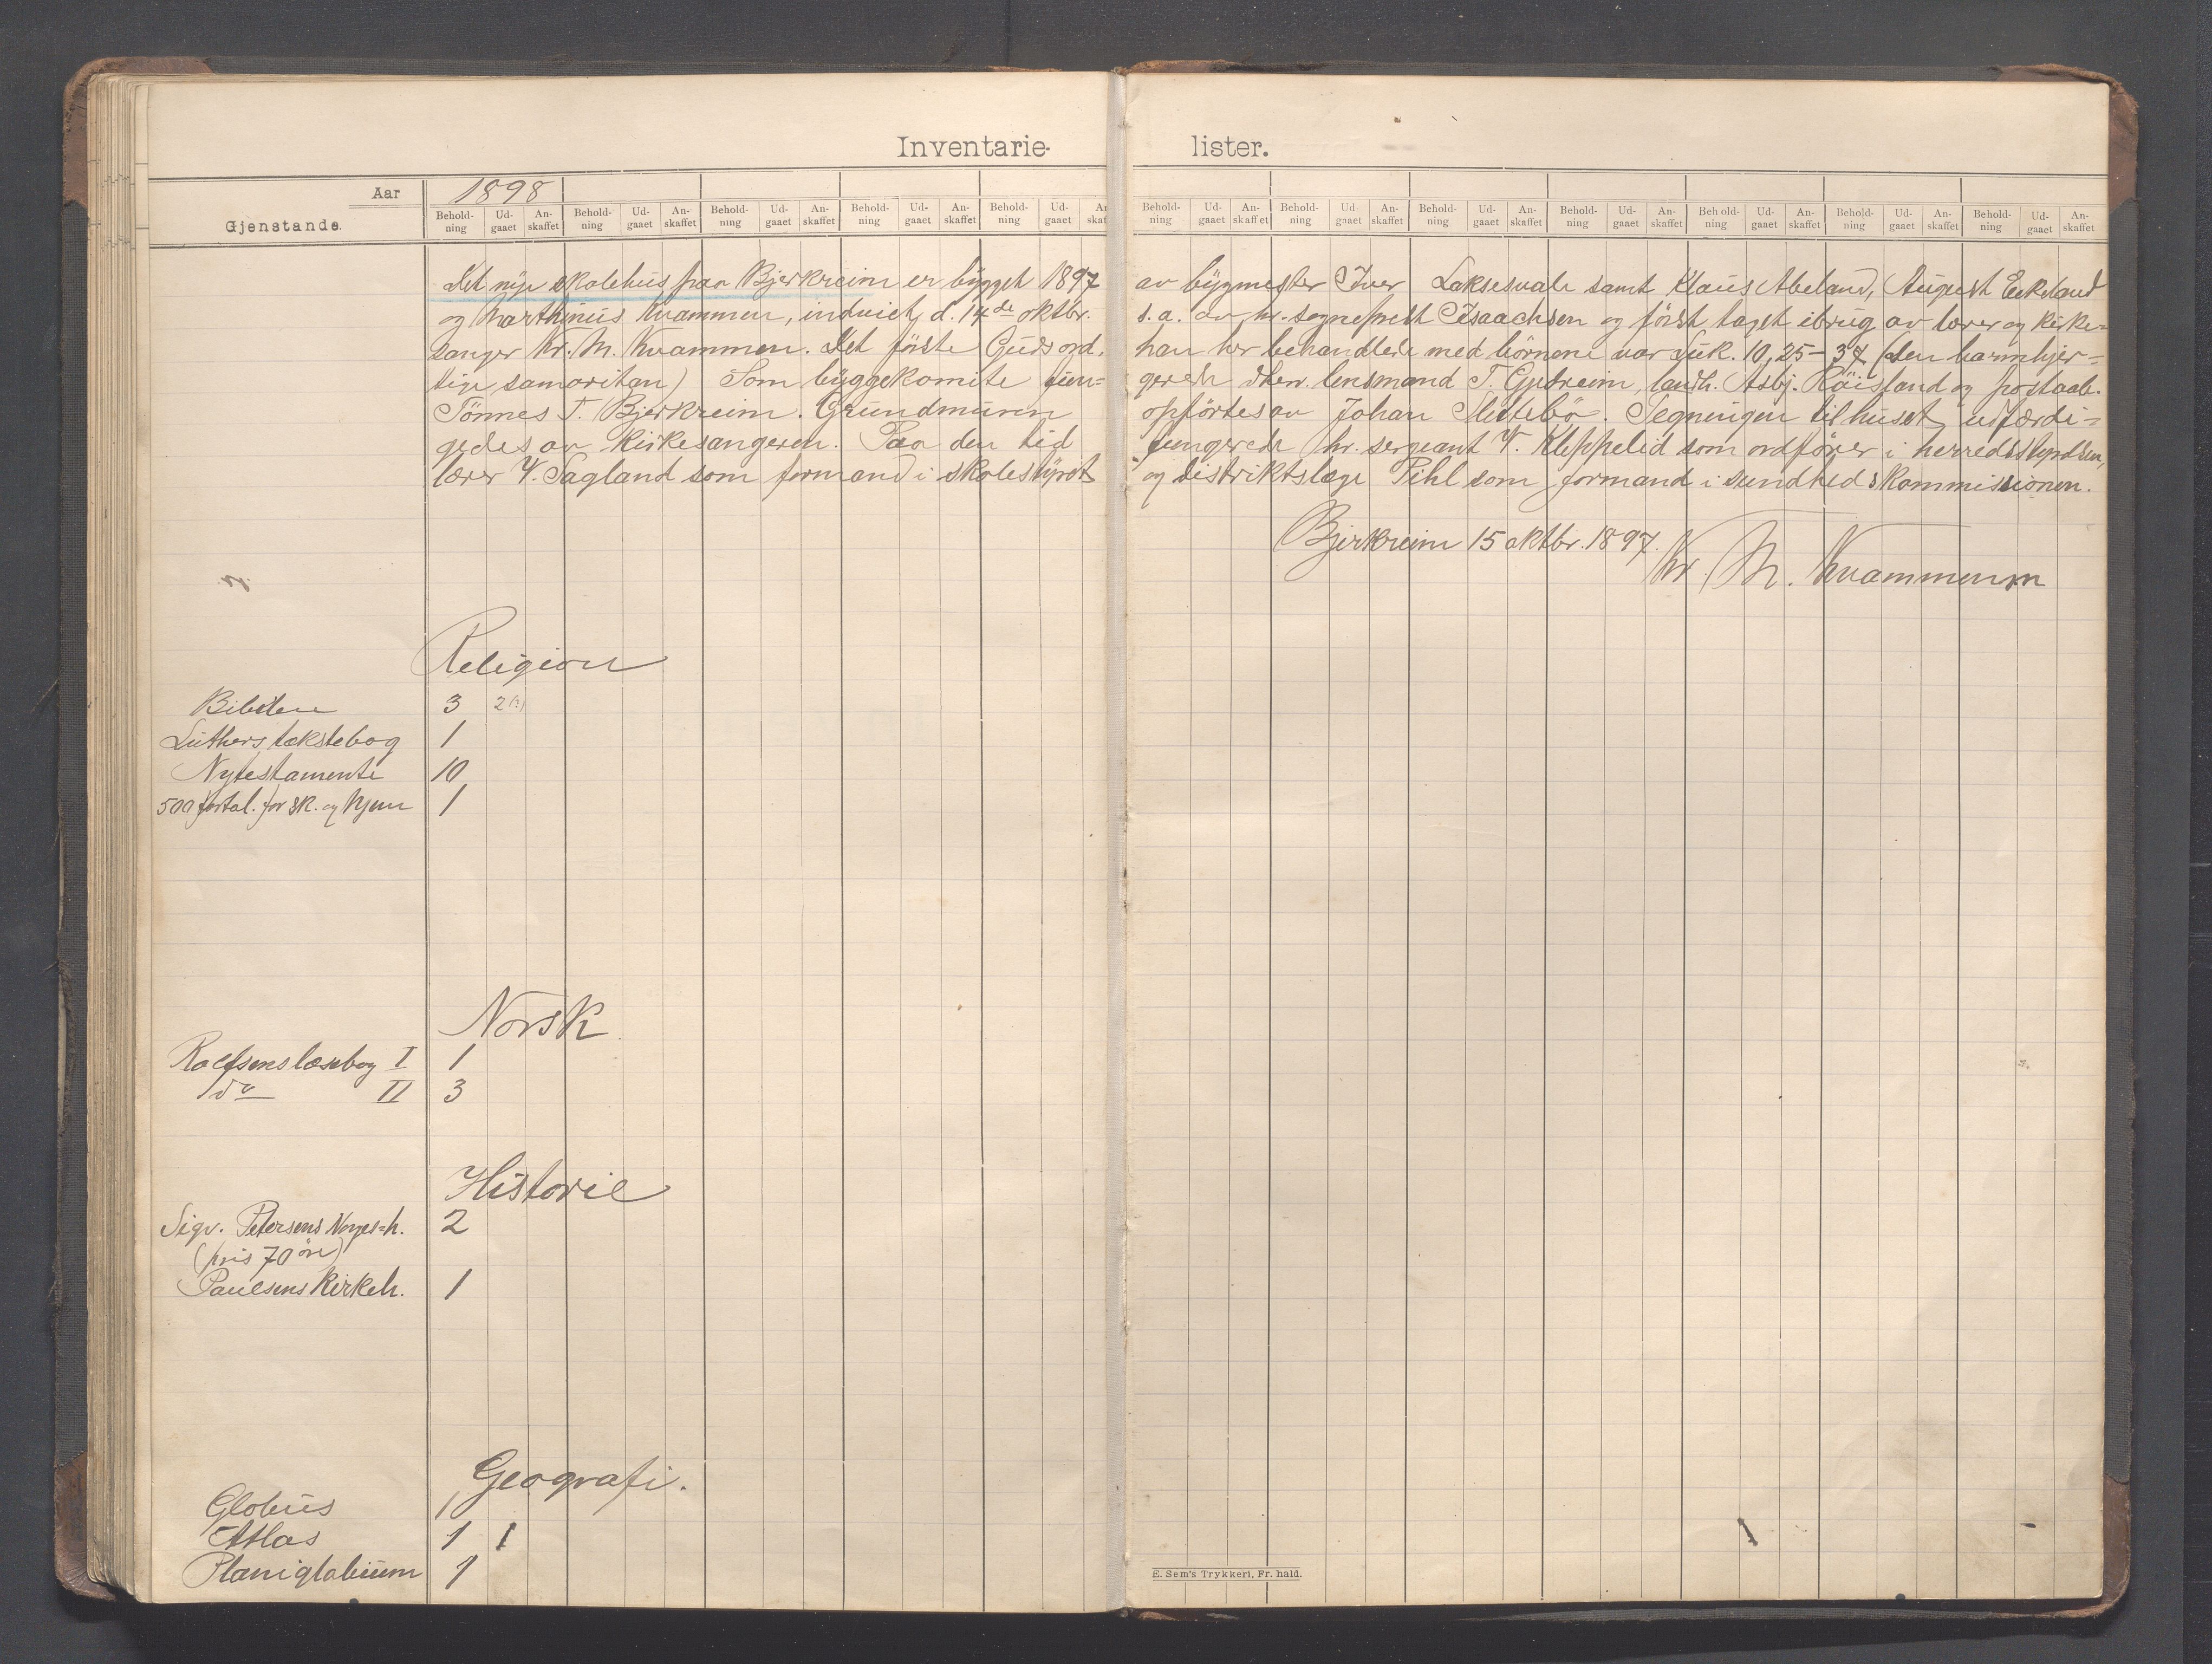 Inventarie-lister.
Aar 1898
Gjenstande.
Behold-ning Ud-gaaet An-skaffet Behold-ning Ud-gaaet An-skaffet Behold-ning Ud-gaaet An-skaffet Behold-ning Ud-gaaet An-skaffet Behold-ning Ud-gaaet An-skaf
Behold-ning Ud-gaaet An-skaffet Behold-ning Ud-gaaet An-skaffet Behold-ning Ud-gaaet An-skaffet Behold-ning Ud-gaaet An-skaffet Behold-ning Ud-gaaet An-skaffet Behold-ning Ud-gaaet An-skaffet Behold-ning Ud-gaaet An-skaffet
Det nye skolehus paa Bjerkreim er bygget 1897 av bygmester Iver Laksesvale samt Klaus Abeland, August Eikeland
og Marthinus Kvammen, indviet d. 14de oktbr. s. a. av hr. sogneprest Isaachsen og först taget ibrug av lærer og kirke=
sanger Kr. M. Kvammen. Det förste Guds ord, han her behandlede med börnene var Luk. 10, 25-37 (den barmhjer=
tige samaritan) Som byggekomite fun=gerede dhrr. lensmand T. Gjedreim, landh. Asbj. Röisland og postaab.
Tönnes T. Bjerkreim. Grundmuren opförtes av Johan Slettebö. Tegningen til huset udfærdi=
gedes av kirkesangeren. Paa den tid fungerede hr. sergeant V. Kleppelid som ordförer i herredsstyrelsen,
lærer V. Sagland som formand i skolestyret og distriktslæge Pihl som formand i sundhedskommissionen.
Bjerkreim 15 oktbr. 1897.
Kr. M. Kvammen
Religion
Bibelen 3 2
Luthers tekstebog 1
Nytestamente 10
500 fortal. for sk. og hjem 1
Norsk
Rolfsens læsebog I 1
do II 3
Historie
Sigv. Petersens Norges=h. 2
(pris 70 öre)
Paulsens Kirkeh. 1
Geografi.
Globus 1
Atlas 1 1
Planiglobium 1
E. Sem's Trykkeri, Fr. hald.